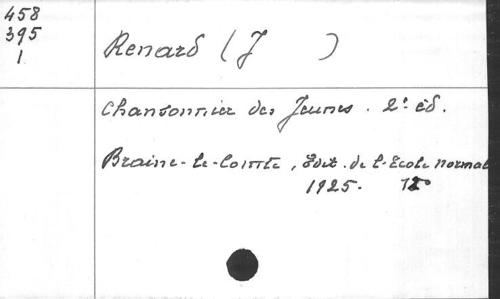 458
395
1
Renard (J )
Chansonnier des Jeunes. 2e éd.
Braine-le-Comte, Edit. de l'Ecole normal
1925. 12°